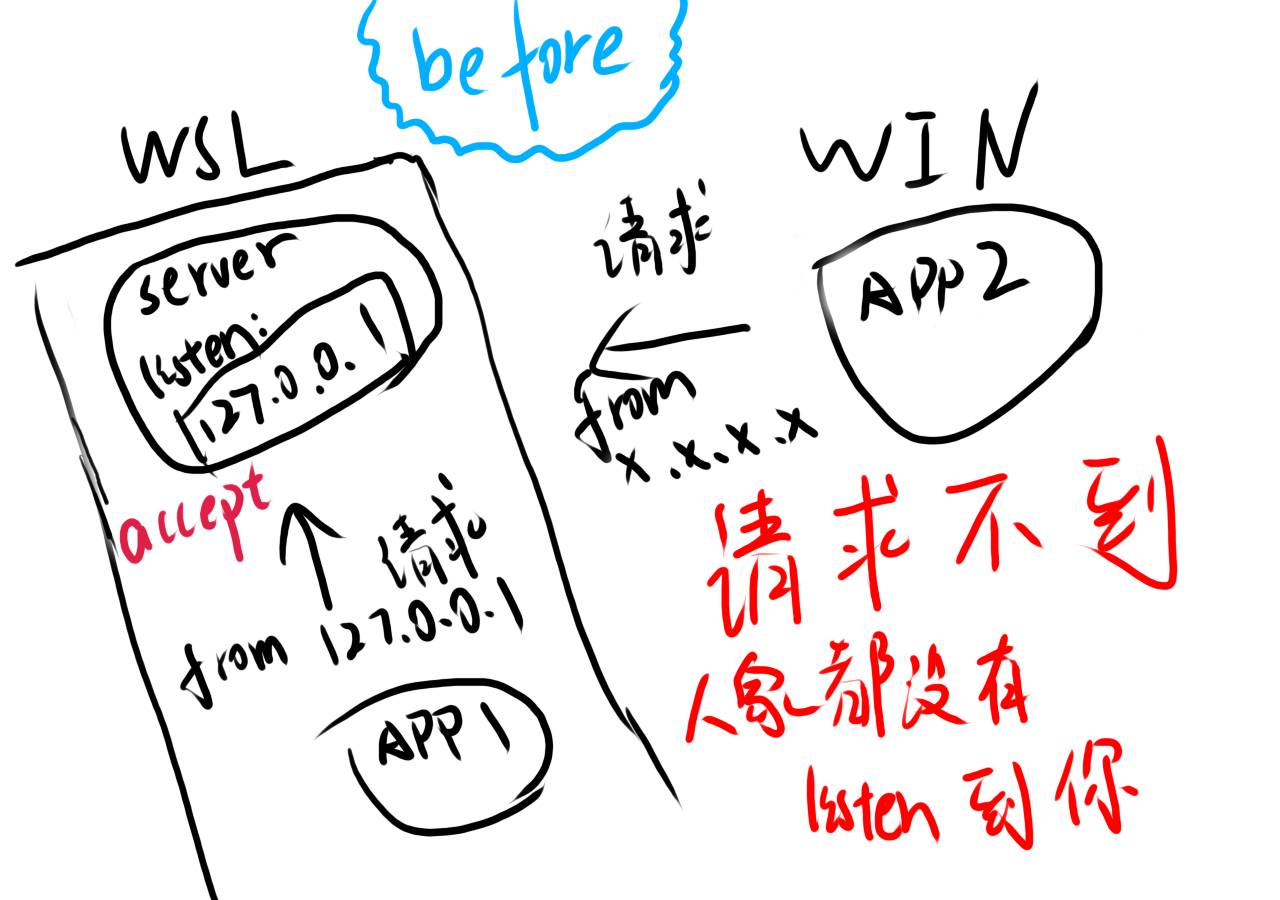 before
WSL
server
listen:
127.0.0.1
accept
请求
from 127.0.0.1
APP1
请求
from
x.x.x.x
WIN
APP2
请求不到
人家都没有
listen到你